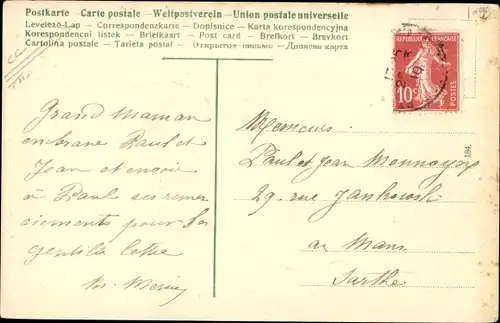 Postkarte - Carte postale - Weltpostverein - Union postale universelle
Levelező-Lap — Correspondenzkarte — Dopisnice — Karta korespondencyjna
Korespondenční lístek — Briefkaart — Post card — Brefkort — Brevkort
Cartolina postale — Tarjeta postal — Открытое письмо — Дописна карта
RÉPUBLIQUE FRANÇAISE
10c
POSTES
184.
Grand Maman
embrasse Paul et
Jean et envoie
à Paul ses remer
ciements pour sa
gentille lettre
M.
Messieurs
Paul et Jean Monnoyer
29 rue
au Mans
Sarthe